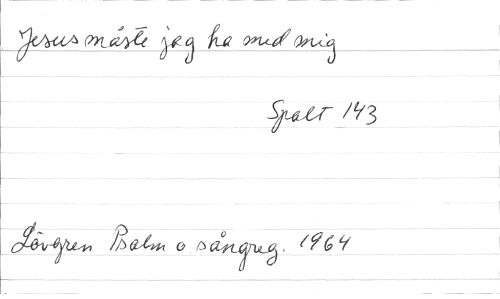 Jesus måste jag ha med mig
Spalt 143
Lövgren Psalm o sångreg. 1964